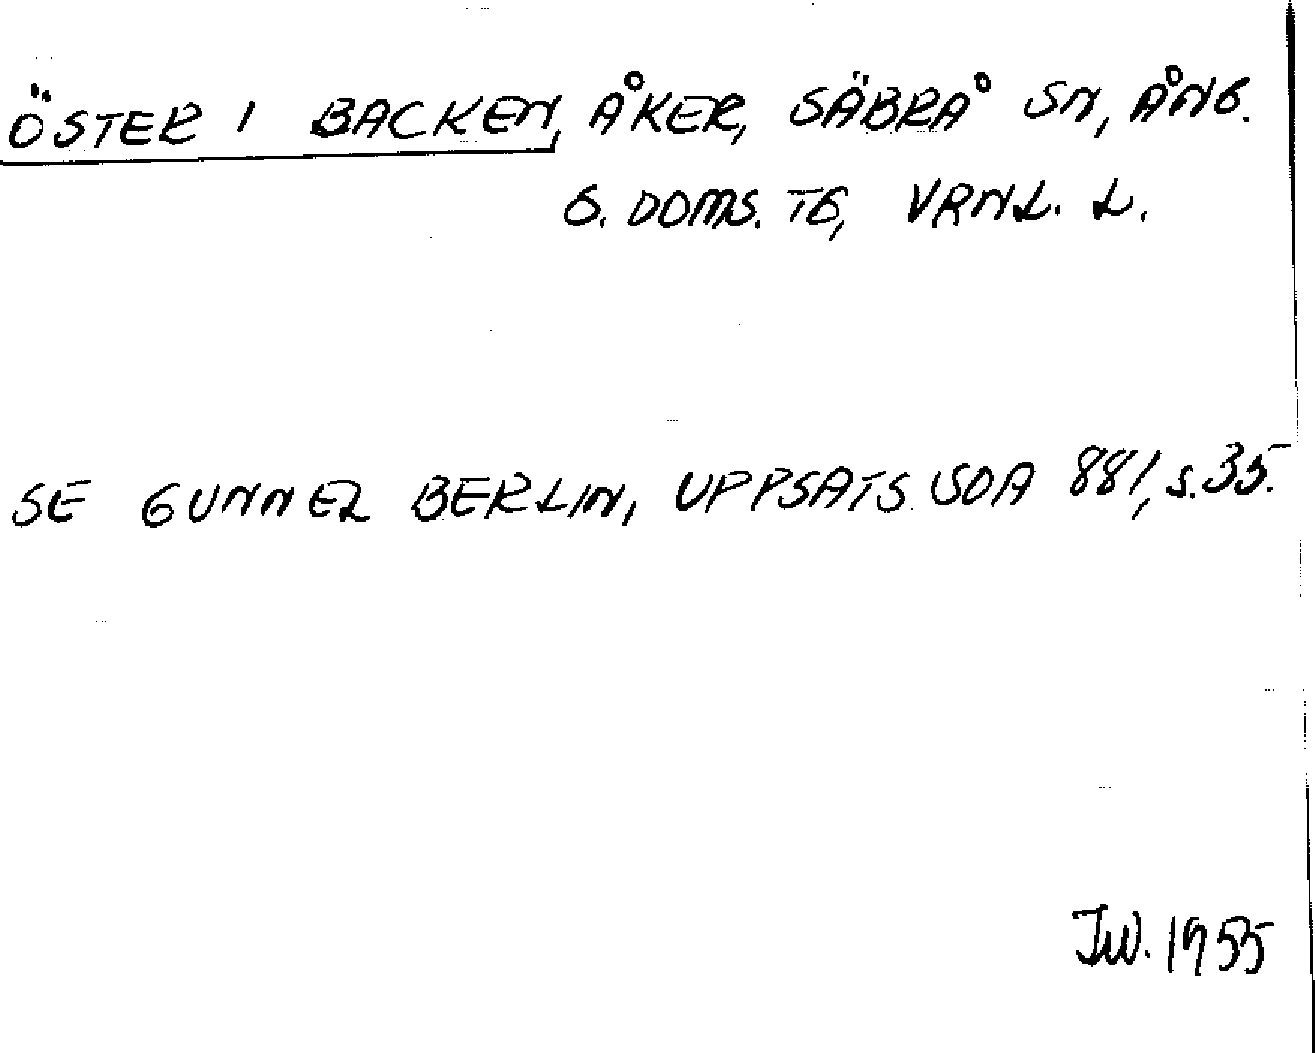 ÖSTER I BACKEN, ÅKER, SÄBRÅ SN, ÅNG.
G. DOMS. TG, VRNL. L.
SE GUNNEL BERLIN, UPPSATS. SOA 881, S. 35.
JW. 1955